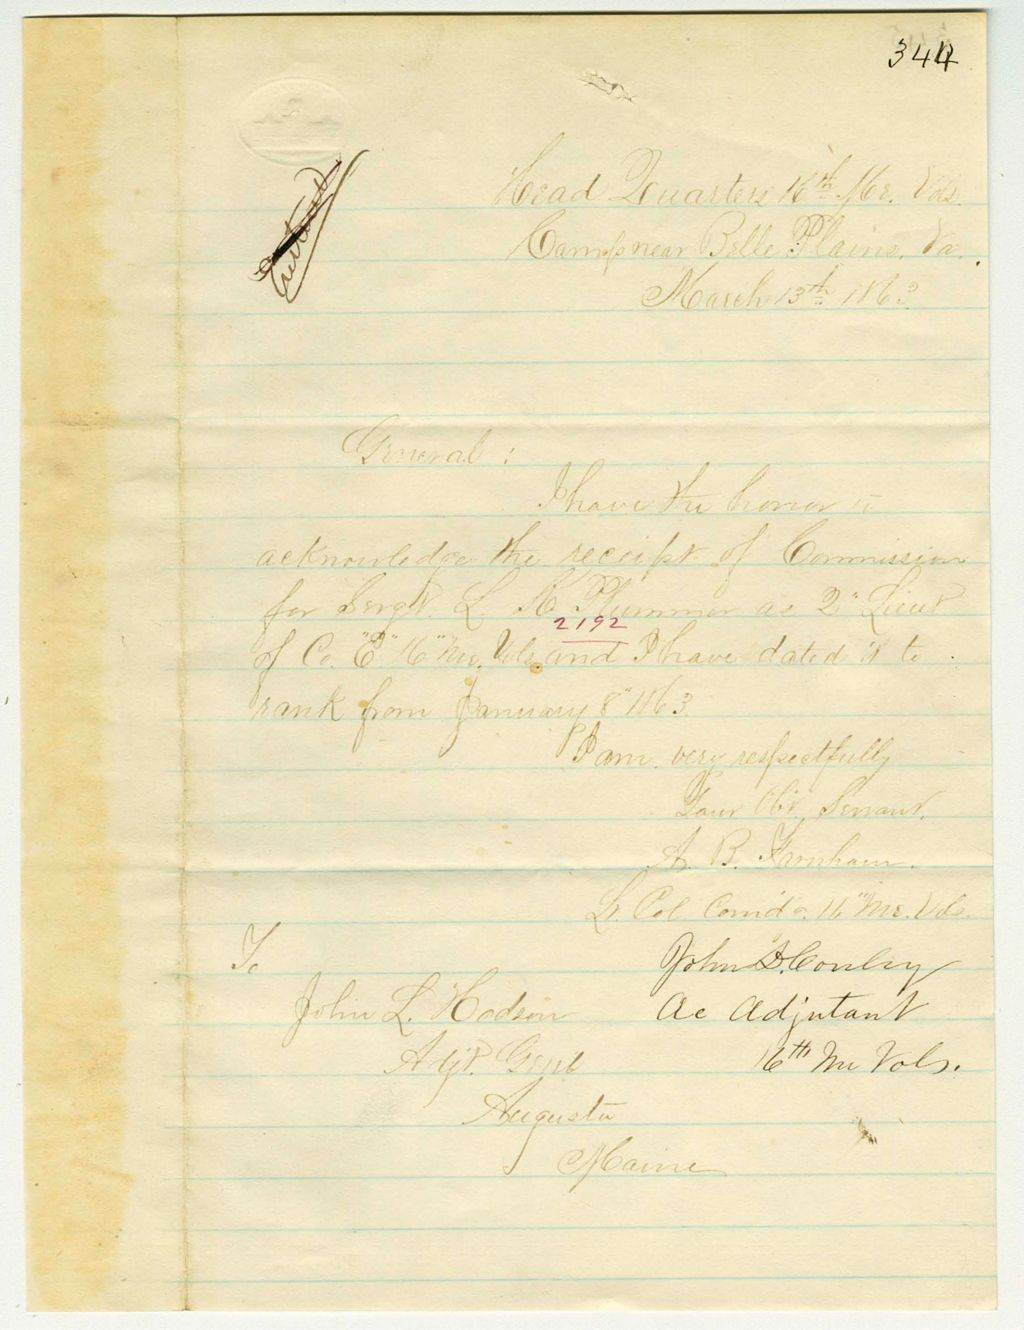 344
Entered
Head Quarters 16th Me. Vols.
Camp near Belle Plains, Va.
March 13th 1863
General :
I have the honor to
acknowledge the receipt of Commission
for Sergt. L. K. Plummer as 2" Lieut
2192
of Co. "E" 16" Me. Vols and I have dated it to
rank from January 8" 1863.
I am very respectfully
Your Obt. Servant,
A. B. Farnham.
Lt. Col Comd'g. 16" Me. Vols.
To
John D. Conley
John L. Hodsdon
Ac Adjutant
Adjt. Genl
16th Me Vols.
Augusta
Maine